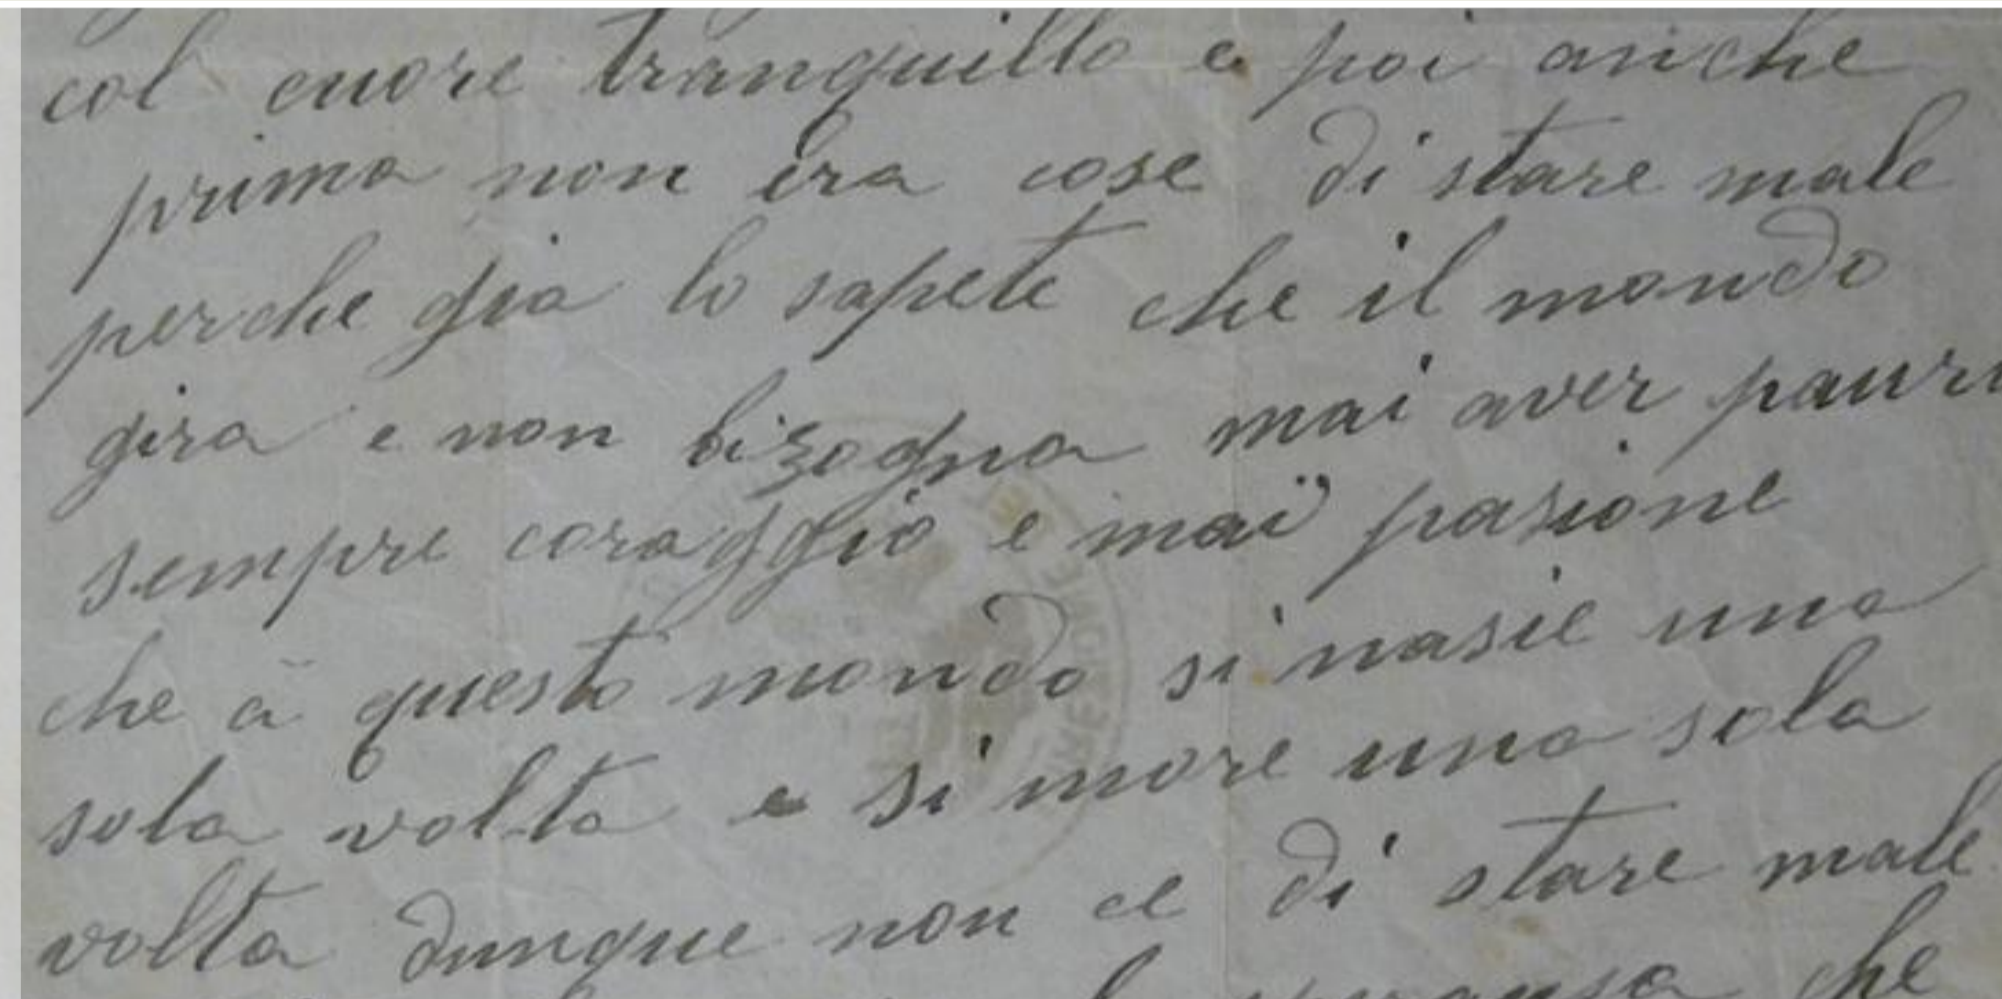 col cuore tranquillo e poi anche
prima non era cose di stare male
perche gia lo sapete che il mondo
gira e non bisogna mai aver paura
sempre coraggio e mai pasione
che à questo mondo si nasie una
sola volta e si more una sola
volta dunque non ce di stare male
che